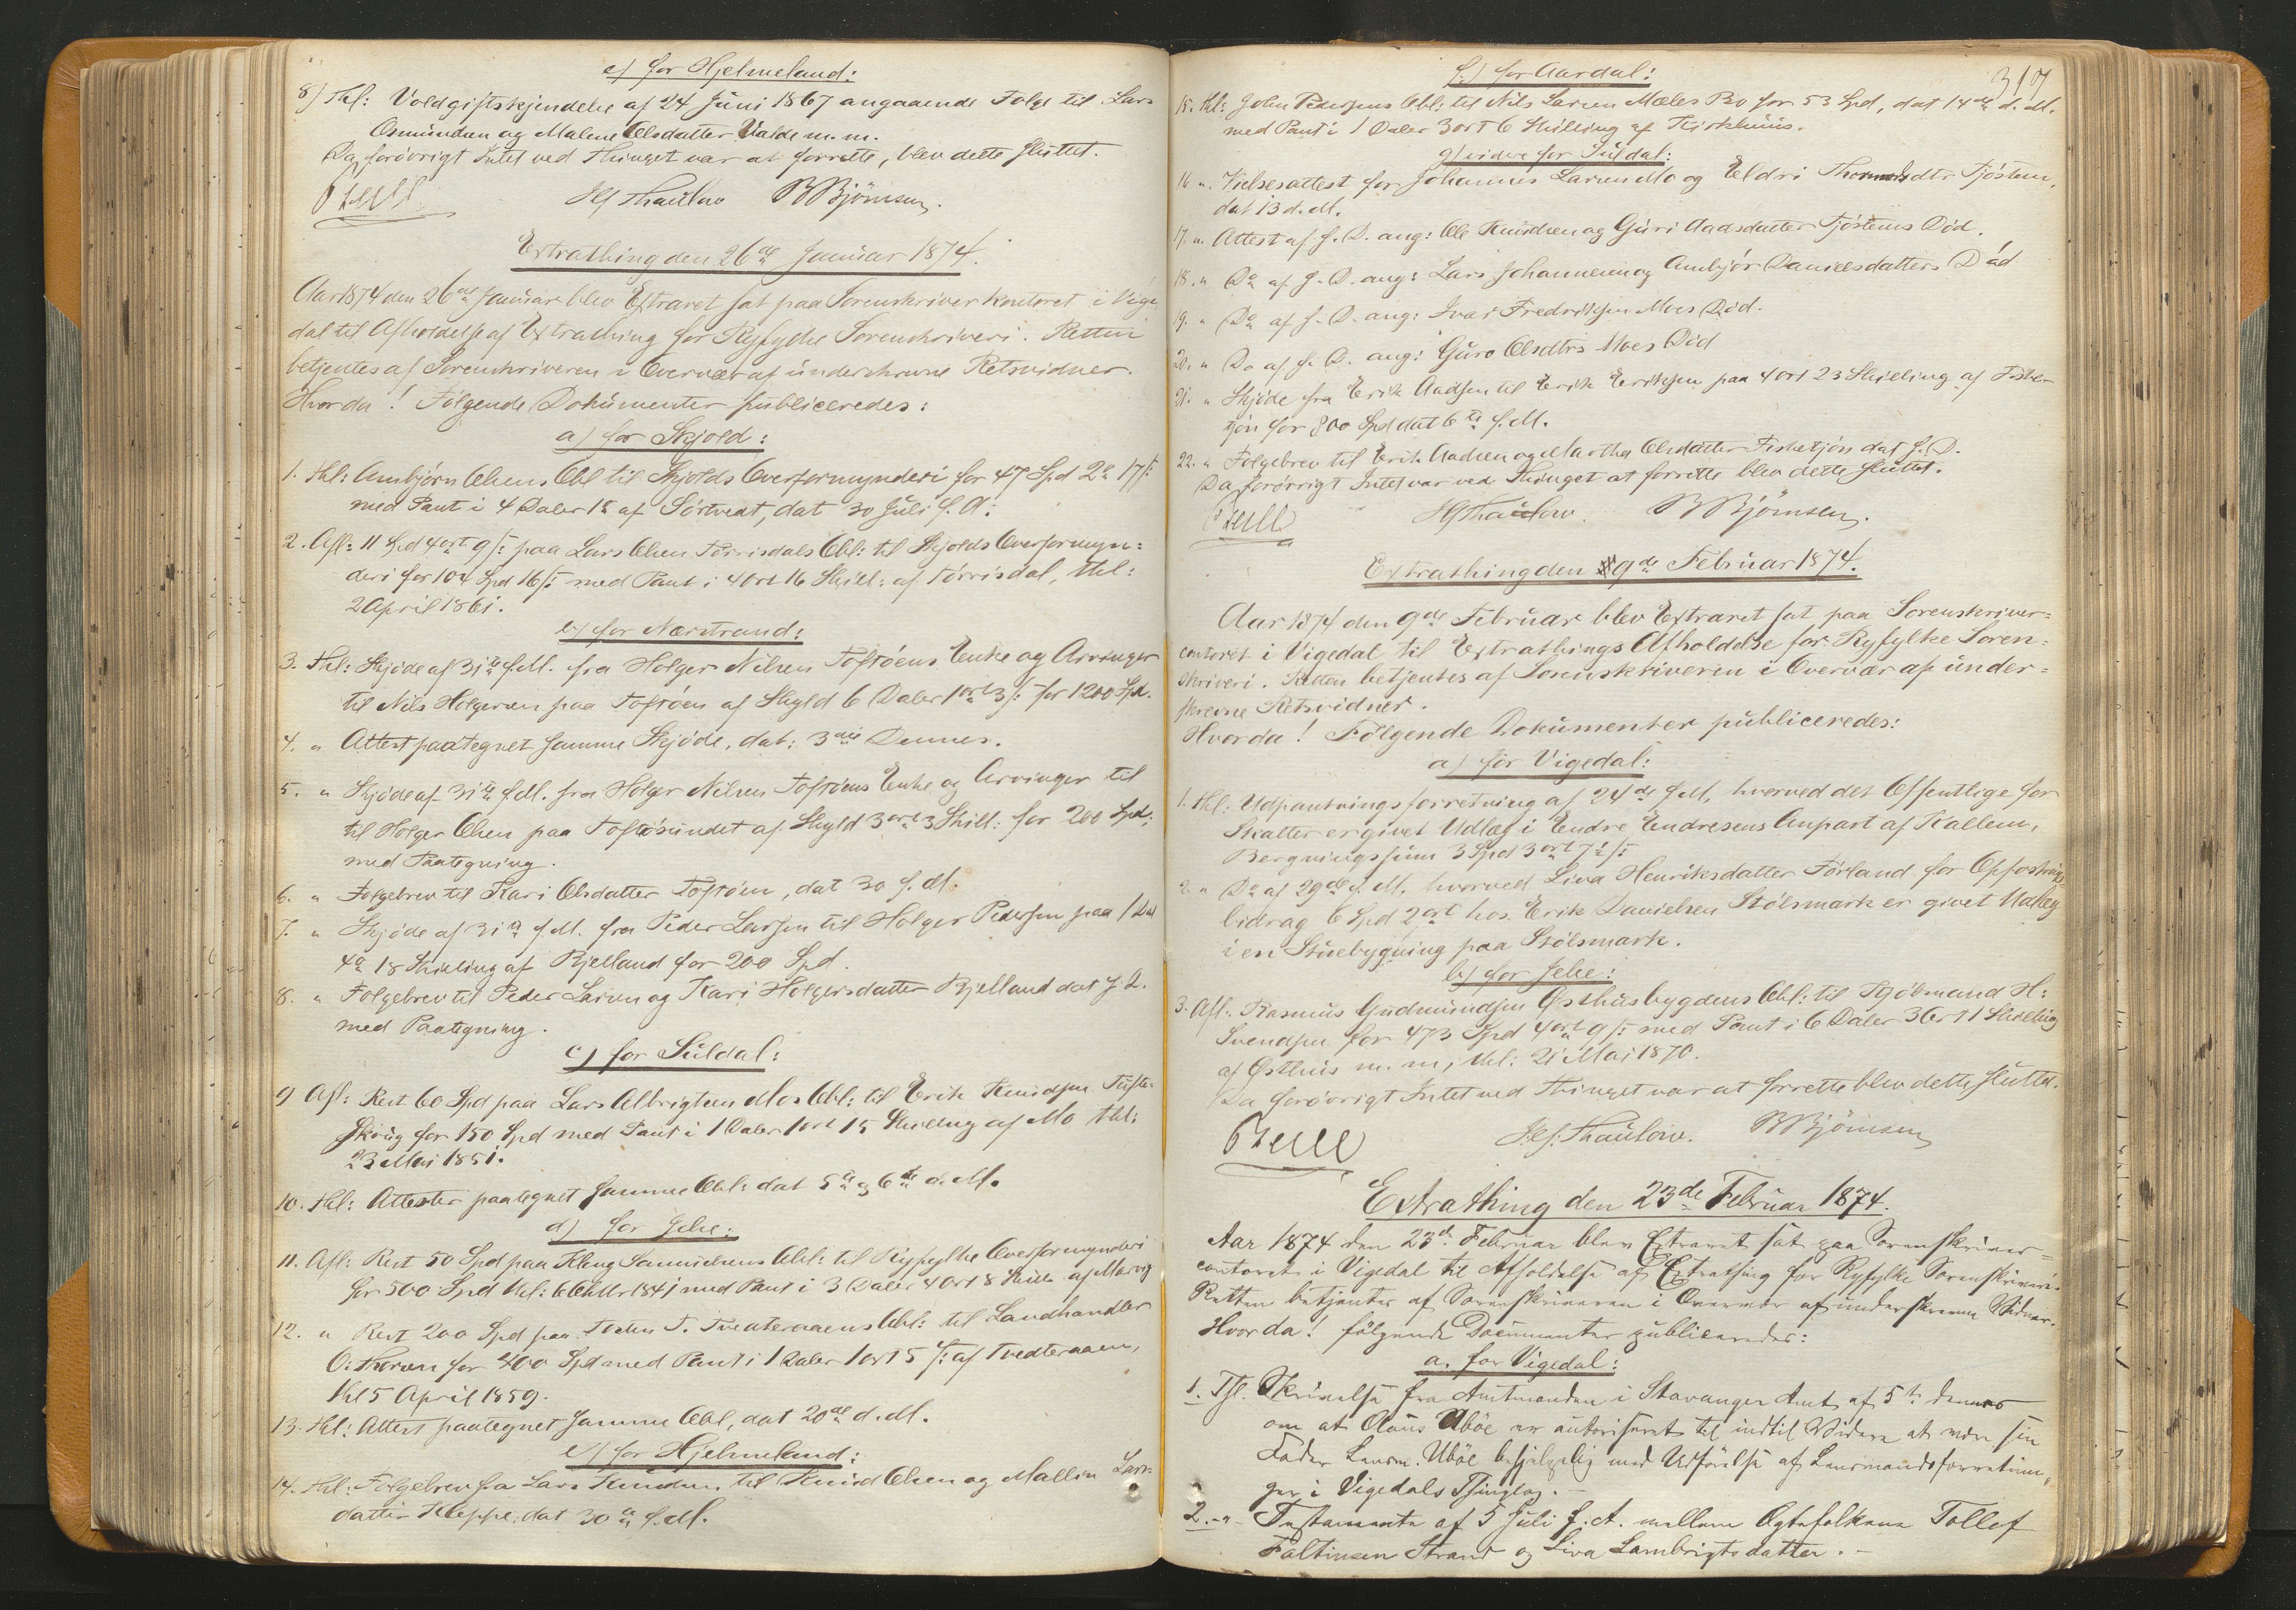 e) for Hjelmeland:
8) Thl: Voldgiftskjendelse af 24 Juni 1867 angaaende Folge til Lars
Osmundsen og Malene Olsdatter Valde m.m.
Da forövrigt Intet ved Thinget var at forrette, blev dette sluttet.
Jess Thaulow BBjörnsen.
Extrathing den 26de Januar 1874.
Aar 1874 den 26de Januar blev Extraret sat paa Sorenskriverkontoret i Vige
dal til Afholdelse af Extrathing for Ryfylke Sorenskriveri. Retten
betjentes af Sorenskriveren i Overvær af underskrevne Retsvidner.
Hvorda! Fölgende Dokumenter publiceredes:
a) for Skjold:
1. Thl: Ambjörn Olsens Obl til Skjolds Overformynderi for 47 Spd 2 17 s:
med Pant i 4 Daler 18 af Sörtveit, dat 30 Juli f. A.
2. Afl: 11 Spd 4 ort 9 s: paa Lars Olsen Törrisdals Obl: til Skjolds Overformyn=
deri for 104 Spd 16 s: med Pant i 4 Ort 16 Skill: af Törrisdal, thl:
2 April 1861.
b) for Nærstrand:
3. Thl: Skjöde af 31te f.M. fra Holger Nilsen Toftöens Enke og Arvinger
til Nils Holgersen paa Toftöen af Skyld 6 Daler 1 ort 3 s: for 1200 Spd.
4. " Attest paategnet samme Skjöde, dat: 3die Dennes.
5. " Skjöde af 31te f.M. fra Holger Nilsen Toftöens Enke og Arvinger til
til Holger Olsen paa Toftösundet af Skyld 3 ort 3 Skill: for 200 Spd:
med Paategning.
6. " Folgebrev til Kari Olsdatter Toftöen, dat 30 f. M.
7. " Skjöde af 31te f.M. fra Peder Larsen til Holger Pedersen paa 1 Dal
4 18 Skilling af Bjelland for 200 Spd.
8. " Folgebrev til Peder Larsen og Kari Holgersdatter Bjelland dat f. D.
med Paategning.
c) for Suldal:
9 Afl: Rest 60 Spd paa Lars Albrigtsen Mos Obl: til Erik Knudsen Tufte=
skoug for 150 Spd med Pant i 1 Daler 1 ort 15 Skilling af Mo thl:
23 Mai 1851.
10. Thl: Attester paategnet samme Obl: dat 5te og 6te d. M.
d) for Jelse:
11. Afl: Rest 50 Spd paa Kleng Samuelsens Obl: til Ryfylke Overformynderi
for 500 Spd thl: 6 Oktbr 1841 med Pant i 3 Daler 4 Ort 8 Skill af Marvig
12. " Rest 200 Spd paa T. Tvedteraaens Obl: til Landhandler
O. Thorsen for 400 Spd med Pant i 1 Daler 1 ort 5 s: af Tvedteraaen,
thl 5 April 1859.
13. Thl: Attest paategnet samme Obl, dat 20de d. M.
e) for Hjelmeland:
14. Thl: Folgebrev fra Lars Knudsen til Knud Olsen og Mallin Lars=
datter Kleppe, dat 30te f. M.
317
f.) for Aardal:
15. Thl: John Pedersens Obl: til Nils Larsen Mæles Bo for 53 Spd, dat 14de d. M.
med Pant i 1 Daler 3 ort 6 Skilling af Kirkhuus.
g) videre for Suldal:
16 ". Vielsesattest for Johannes Larsen Mo og Eldri Thormodsdtr Fjöstem,
dat 13 d. M.
17. ". Attest af f. D. ang: Ole Knudsen og Guri Aadsdatter Fjöstems Död.
18. " Do af f. D. ang: Lars Johannesen og Ambjör Danielsdatters Död
19. " Do af f. D. ang: Ivar Fredriksen Moes Död.
20. " Do af f. D. ang: Guro Olsdtrs Moes Död
21. " Skjöde fra Erik Aadsen til Erik Eriksen paa 4 ort 23 Skilling af Fiske
tjön for 800 Spd dat 6te f. M.
22. " Folgebrev til Erik Aadsen og Martha Olsdatter Fisketjön dat f. D.
Da forövrigt Intet var ved Thinget at forrette blev dette sluttet.
Jess Thaulow. BBjörnsen.
Extrathing den 9de Februar 1874.
Aar 1874 den 9de Februar blev Extraret sat paa Sorenskriver=
contoret i Vigedal til Extrathings Afholdelse for Ryfylke Soren=
skriveri. Retten betjentes af Sorenskriveren i Overvær af under=
skrevne Retsvidner.
Hvorda! Fölgende Dokumenter publiceredes:
a) for Vigedal:
1. Thl: Udpantningsforretning af 24de f.M. hvorved det Offentlige for
Skatter er givet Udlæg i Endre Endresens Anpart af Kallem,
Bergningssum 3 Spd 3 ort 7½ s:
2. " Do af 29de f. M. hvorved Liva Henriksdatter Förland for Opfostrings
bidrag 6 Spd 2 ort hos Erik Danielsen Stölsmark er givet Udlæg
i en Stuebygning paa Stölsmark.
b) for Jelse:
3. Afl: Rasmus Gudmundsen Østhusbygdens Obl: til Kjöbmand H:
Svendsen for 473 Spd 4 ort 9 s: med Pant i 6 Daler 3 Ort 1 Skilling
af Østhus m. m, thl: 21 Mai 1870.
Da forövrigt Intet ved Thinget var at forrette blev dette sluttet.
Jess. Thaulow. BBjörnsen
Extrathing den 23de Februar 1874.
Aar 1874 den 23de Februar blev Extraret sat paa Sorenskriver=
contoret i Vigedal til Afholdelse af Extrathing for Ryfylke Sorenskriveri.
Retten betjentes af Sorenskriveren i Overvær af underskrevne Vidner.
Hvorda! fölgende Documenter publiceredes:
a. for Vigedal:
1. Thl. Skrivelse fra Amtmanden i Stavanger Amt af 5te dennes
om at Claus Uböe er autoriseret til indtil Videre at være sin
Fader Lensm. Uböe behjelpelig med Udförelse af Lensmandsforretnin=
ger i Vigedals Thinglag. -
2. -"- Testamente af 5 Juli f. A. mellem Ægtefolkene Tollef
Faltinsen Strand og Liva Lambrigtsdatter. -